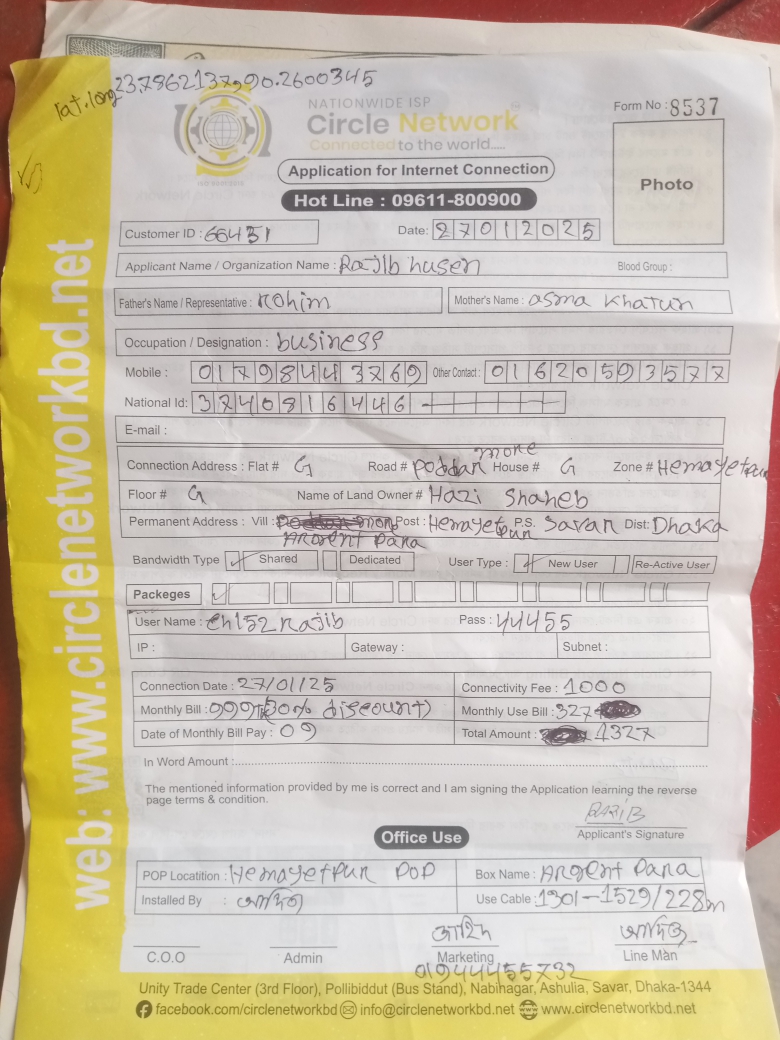 lat.long 23.7862137,90.2600345
NATIONWIDE ISP
Circle Network
Connected to the world.....
Form No : 8537
Application for Internet Connection
Photo
Hot Line : 09611-800900
Customer ID : 66431
Date: 27012025
Applicant Name / Organization Name : Rajib husen Blood Group :
Father's Name / Representative : Rohim Mother's Name : asma Khatun
Occupation / Designation : business
Mobile : 01798443769 Other Contact : 01620593577
National Id: 3740816446
E-mail :
Connection Address : Flat # G Road # Poddar more House # G Zone # Hemayetpur
Floor # G Name of Land Owner # Hazi Shaheb
Permanent Address : Vill : Post : Hemayetpur P.S. Savar Dist: Dhaka
Argent Para
Bandwidth Type Shared Dedicated User Type : New User Re-Active User
Packeges
User Name : ch152rajib Pass : 44455
IP : Gateway : Subnet :
Connection Date : 27/01/25 Connectivity Fee : 1000
Monthly Bill : 999(30% discount) Monthly Use Bill : 327
Date of Monthly Bill Pay : 09 Total Amount : 1327
In Word Amount :
The mentioned information provided by me is correct and I am signing the Application learning the reverse
page terms & condition.
RAJIB
Applicant's Signature
Office Use
POP Locatition : Hemayetpur POP Box Name : Argent Para
Installed By : Use Cable : 1301-1529/228m
C.O.O Admin Marketing Line Man
01944455732
Unity Trade Center (3rd Floor), Pollibiddut (Bus Stand), Nabihagar, Ashulia, Savar, Dhaka-1344
facebook.com/circlenetworkbd info@circlenetworkbd.net www.circlenetworkbd.net
web: www.circlenetworkbd.net